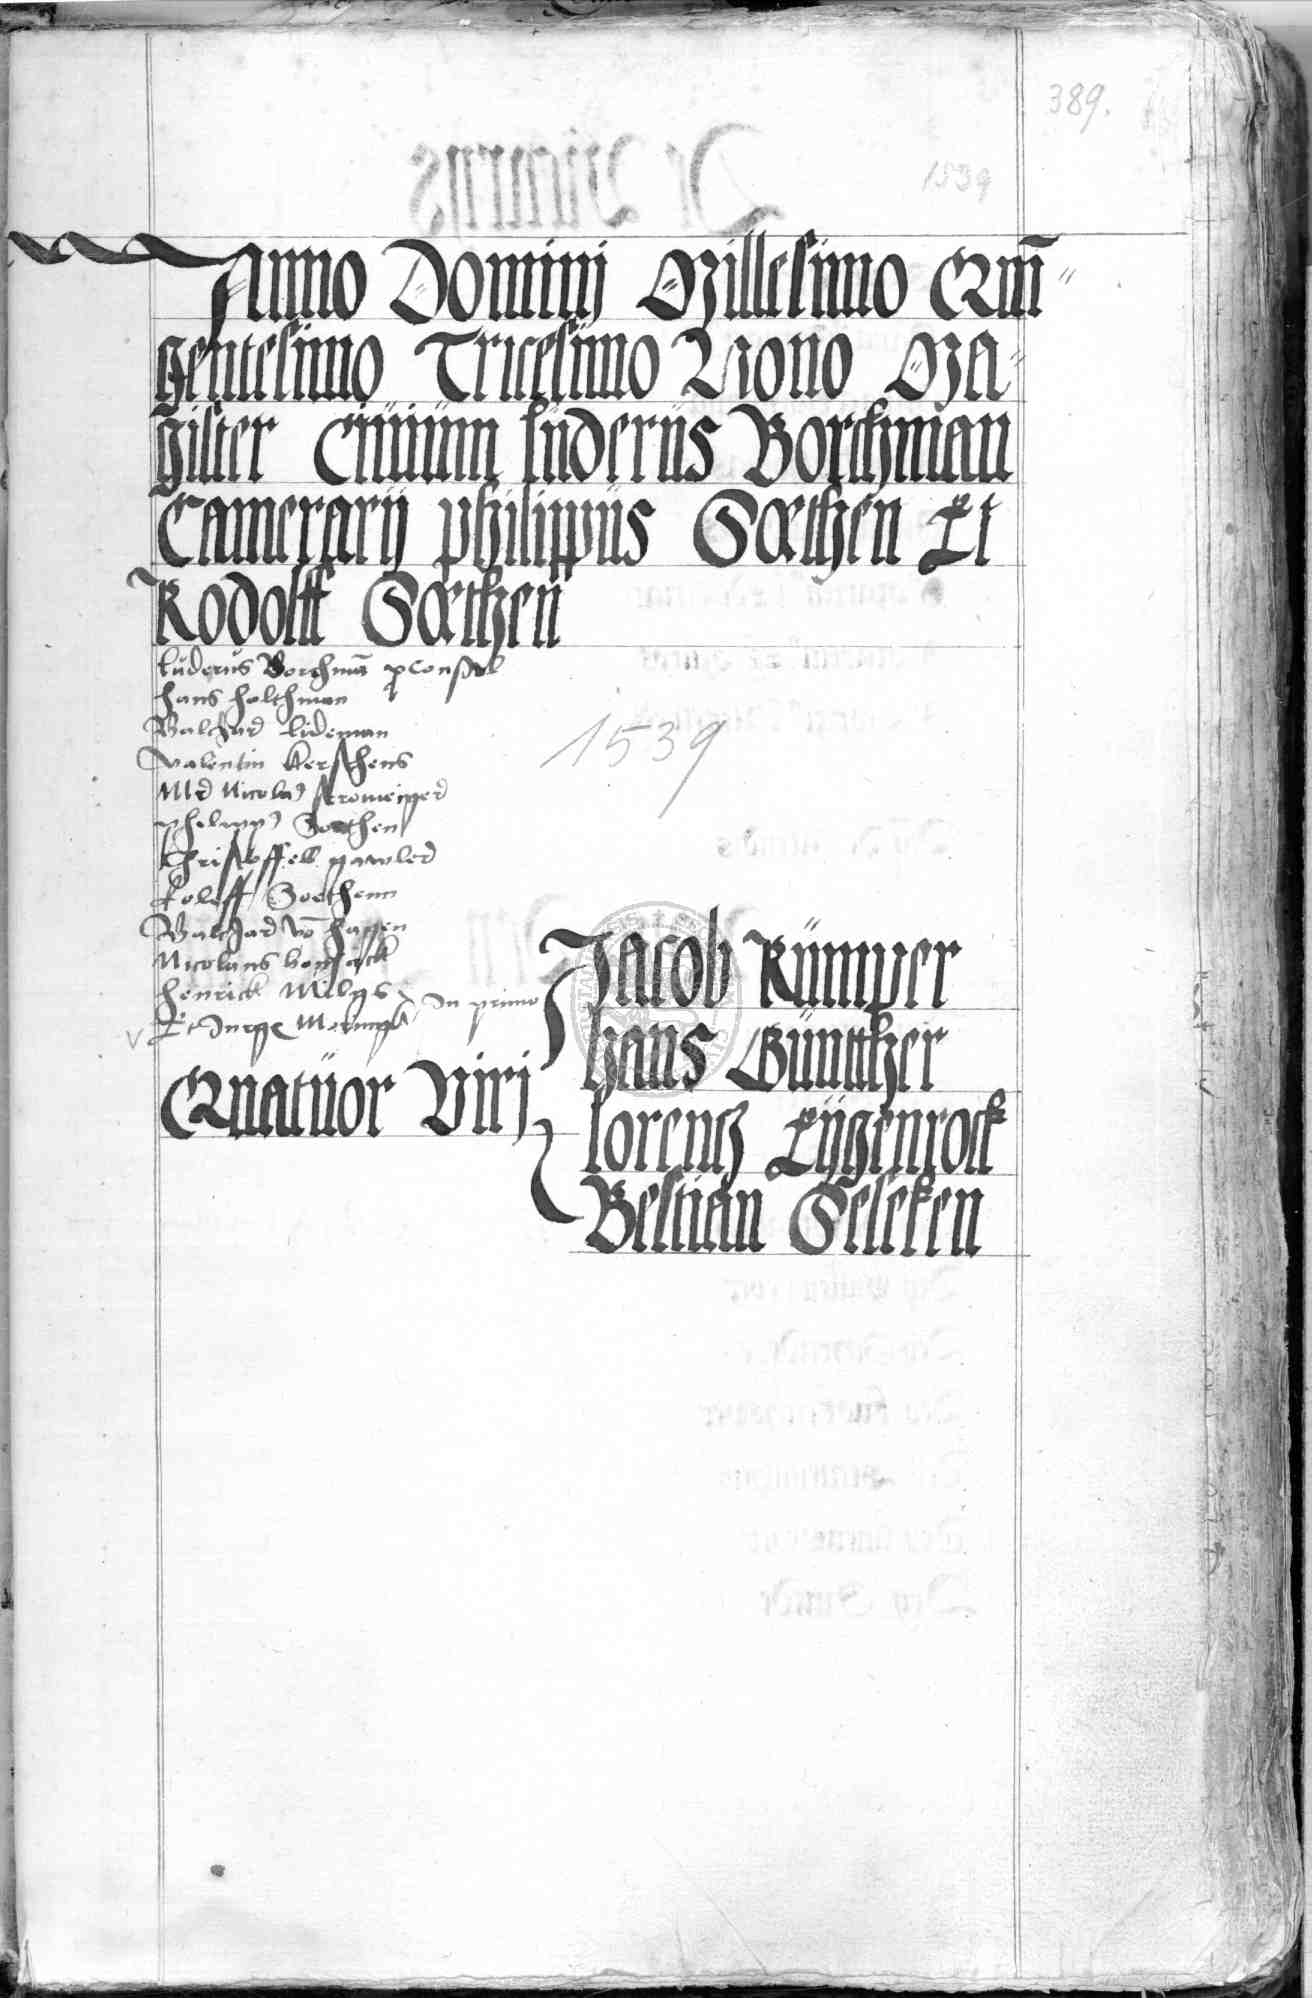 389.
1539
Anno Dominj Millesimo Quin̄
gentesimo Tricesimo Nono Ma
gister Ciuium luderus Borchman
Camerarij philippus Goethen Et
Rodolff Goethen
luderus Borchmā pconsul
hans holthman
Baltzar lideman
valentin kerschens
Nicola
Goethen
Christoffell
Roleff Goethenn
Baltzar vō hagen
Nicolaus bonsack
henrick In primo
Et Jurge
1539
Quatuor Virj
Jacob Kümper
hans Günther
lorentz Eygenrock
Bestian Geleken